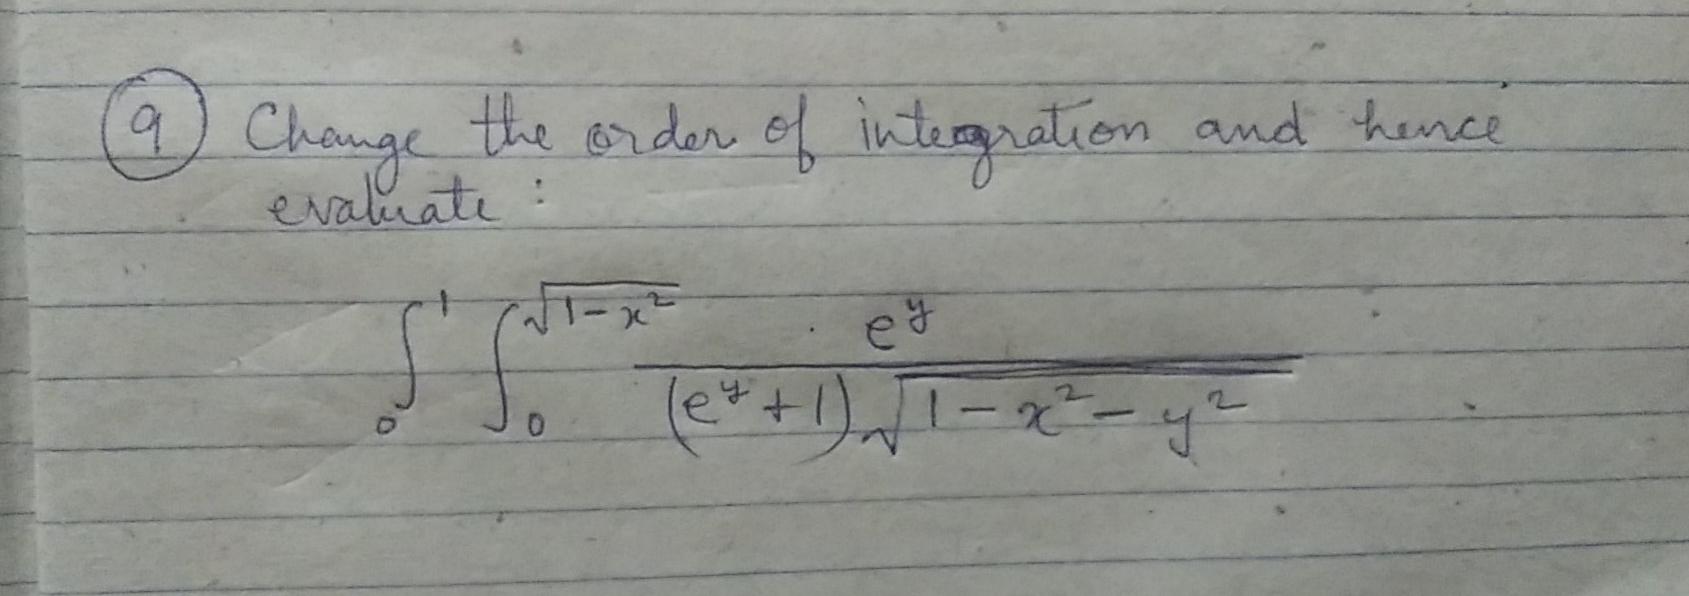 9 Change the order of integration and hence
evaluate :
∫₀¹ ∫₀^√(1-x²) e^y / (e^y+1)√(1-x²-y²)